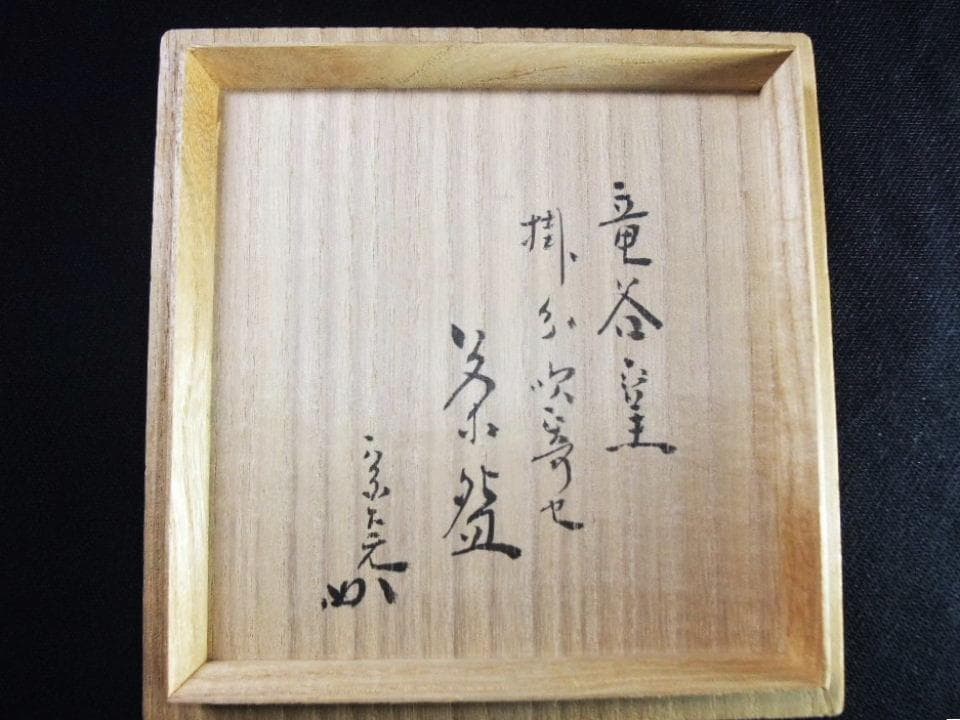 竜谷窯
掛分吹寄せ
茶盌
宗